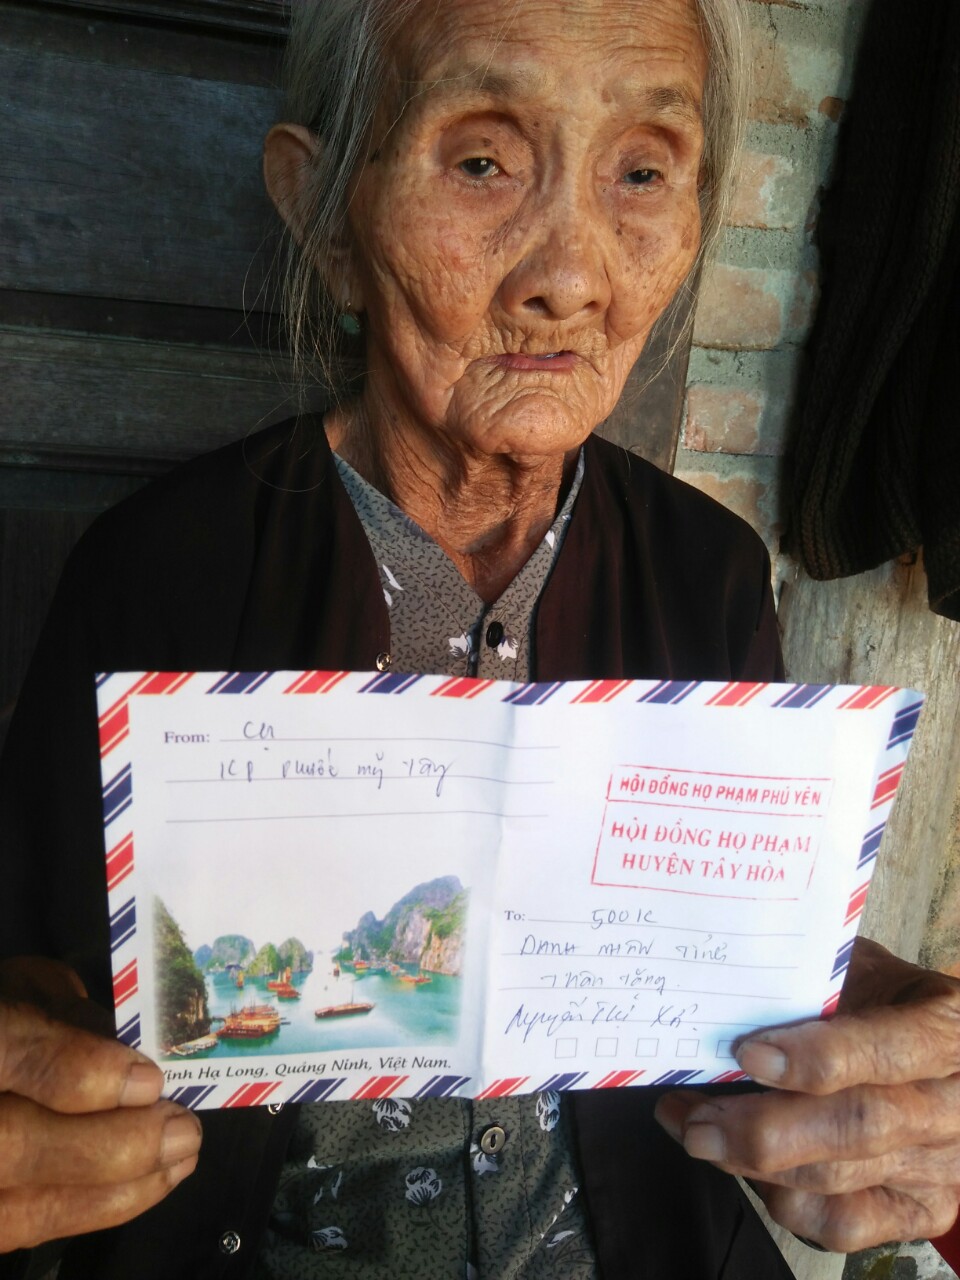 From: Cụ
KP Phước Mỹ Tây
HỘI ĐỒNG HỌ PHẠM PHÚ YÊN
HỘI ĐỒNG HỌ PHẠM
HUYỆN TÂY HÒA
To: 500K
Thân tặng.
Nguyễn Thị
Vịnh Hạ Long, Quảng Ninh, Việt Nam.